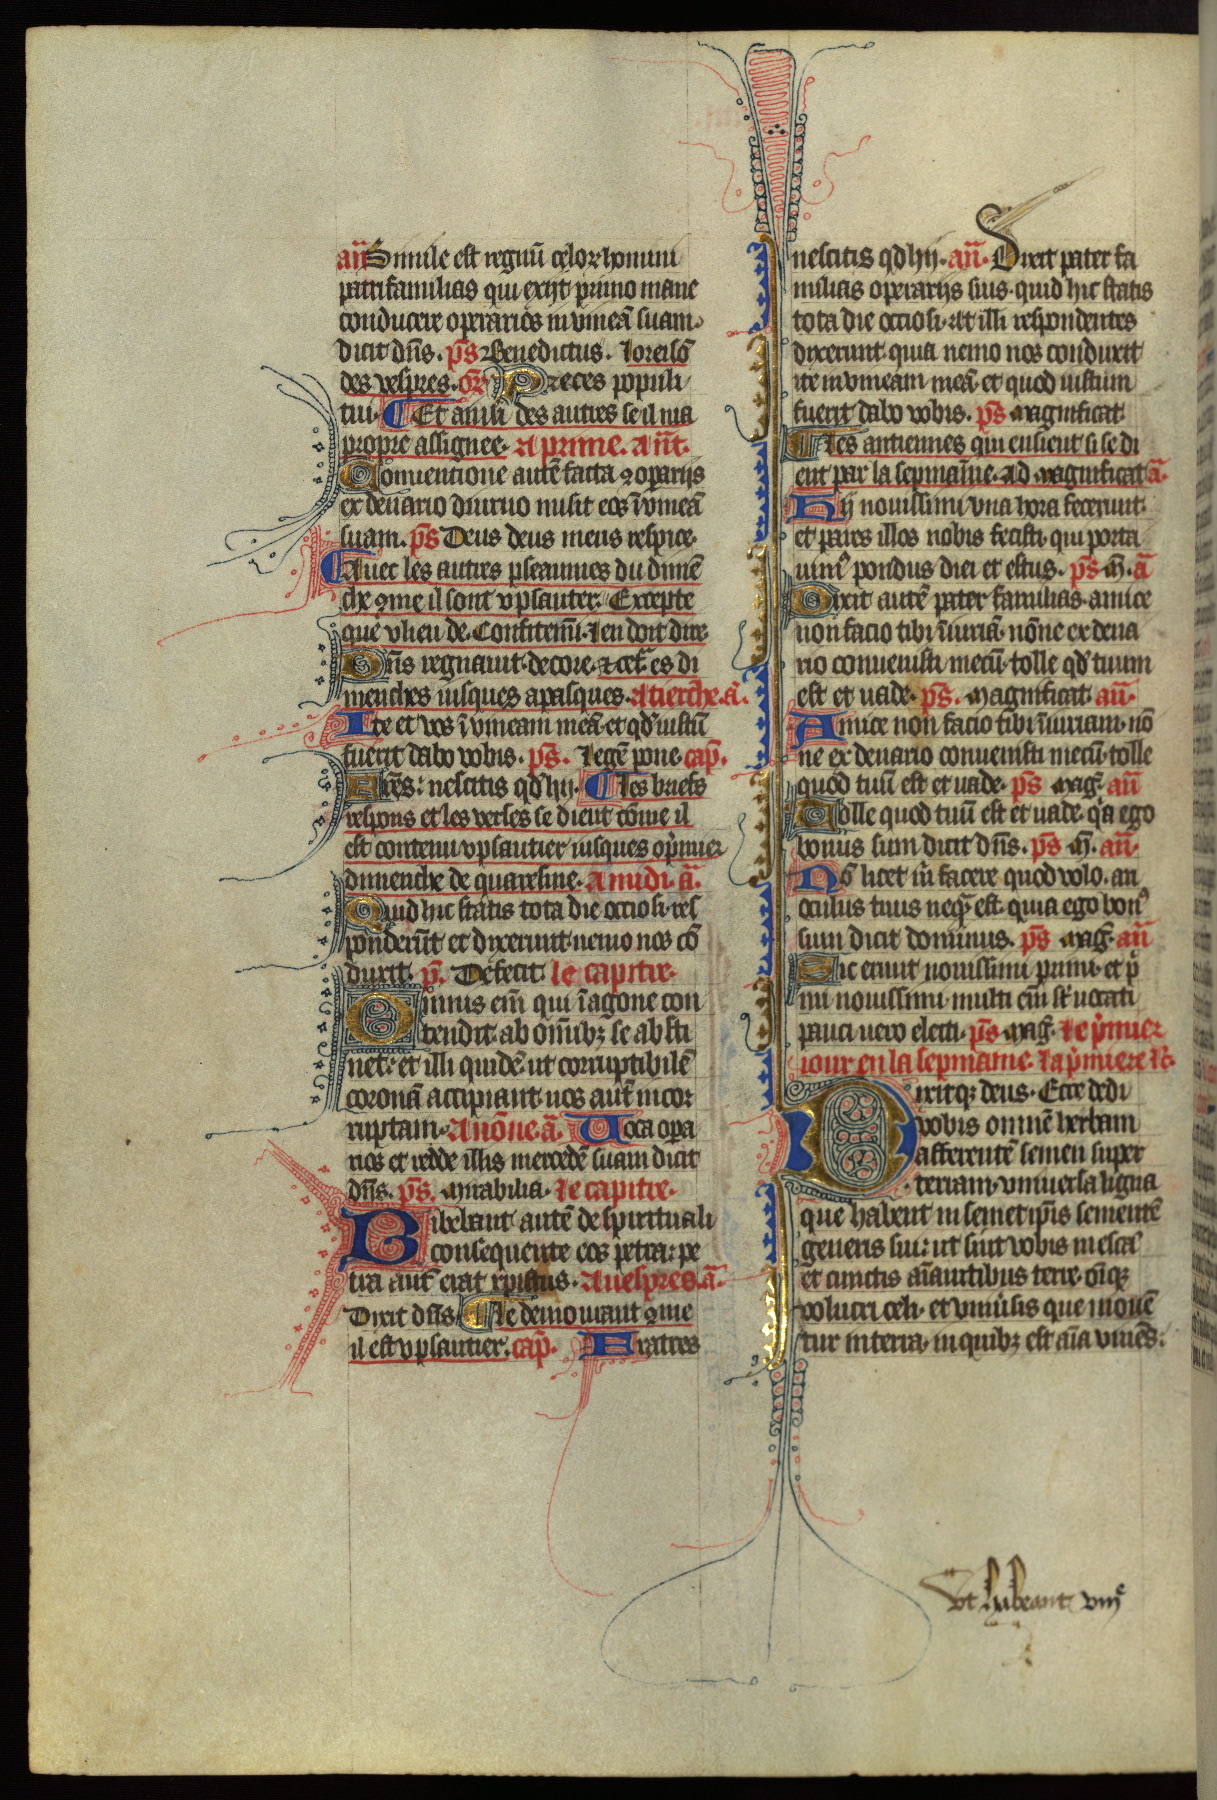 añ Simile est regnũ celoꝝ homini
patrifamilias qui exijt primo mane
conducere operarios in vineã suam
dicit dñs. p̃s Benedictus. loreisõ
des vespres. oꝝ Preces populi
tui. Et ainsi des autres se il n'a
propre assignee. A prime. Añt.
Conuentione autẽ facta ꝯ oparijs
ex denario diurno misit eos ĩ vineã
suam. p̃s Deus deus meus respice.
Auec les autres pseaumes du dimẽ
che ꝯme il sont v psautier. Excepte
que v lieu de Confitemĩ. len doit dire
Dñs regnauit. decore. ⁊ cet̃ es di
menches iusques a pasques. A tierche. ã.
Ite et vos ĩ vineam meã. et qđ iustũ
fuerit dabo vobis. p̃s. Legẽ pone. cap̃.
nescitis qđ hij. Les briefs
respons et les verses se dient cõme il
est contenu v psautier iusques o p̃mier
dimenche de quaresme. A midi. ã.
Quid hic statis tota die ociosi. res
ponderũt et dixerunt. nemo nos cõ
duxit. p̃. Defecit le capitre.
Omnis eñi qui ĩ agone con
tendit. ab omĩbꝫ se absti
net. et illi quidẽ. ut corruptibilẽ
coronã accipiant. nos aut̃ incor
ruptam. A nõne. ã. Uoca opa
rios et redde illis mercedẽ suam dicit
dñs. p̃s. Mirabilia. le capitre.
Bibebant autẽ de spirituali
consequente eos petra. pe
tra aut̃ erat xpistus. A uespres. ã.
Dixit dñs. Le demourant ꝯme
il est v psautier. cap̃. Fratres
nescitis qđ hij. añ. Dixit pater fa
milias operarijs suis. quid hic statis
tota die ociosi. At illi respondentes
dixerunt. quia nemo nos conduxit
ite in vineam meã. et quod iustum
fuerit dabo vobis. p̃s Magnificat
Les antiennes qui ensient si se di
ent par la sepmaĩne. Ad Magnificat ã.
Hij nouissimi vna hora fecerunt.
et pares illos nobis fecisti. qui porta
uimꝰ pondus diei et estus. p̃s. M. ã
Dixit autẽ pater familias. amice
non facio tibi ĩiuriã. nõne ex dena
rio conuenisti mecũ. tolle qđ tuum
est et uade. p̃s. Magnificat. añ.
Amice non facio tibi ĩiuriam. nõ
ne ex denario conuenisti mecũ. tolle
quod tuũ est et uade. p̃s Mag̃. añ
Tolle quod tuũ est et uade. q̃a ego
bonus sum dicit dñs. p̃s M̃. añ.
Nõ licet m̃ facere quod volo. an
oculus tuus neqꝫ est. quia ego bonꝰ
sum dicit dominus. p̃s Mag̃. añ
Sic erunt nouissimi primi. et p̃
mi nouissimi. multi eñi s̃t uocati
pauci uero electi. p̃s. Mag̃. Le p̃mier
iour en la sepmaine. La p̃miere lc̃.
Dixitqꝫ deus. Ecce dedi
vobis omnẽ herbam
afferentẽ semen super
terram. vniuersa ligna
que habent in semetipĩs sementẽ
generis sui. ut sint vobis in escã
et cunctis aĩantibus terre. oĩqꝫ
volucri celi. et vniũsis que mouẽ
tur in terra. in quibꝫ est aĩa viuẽs.
Vt habeant